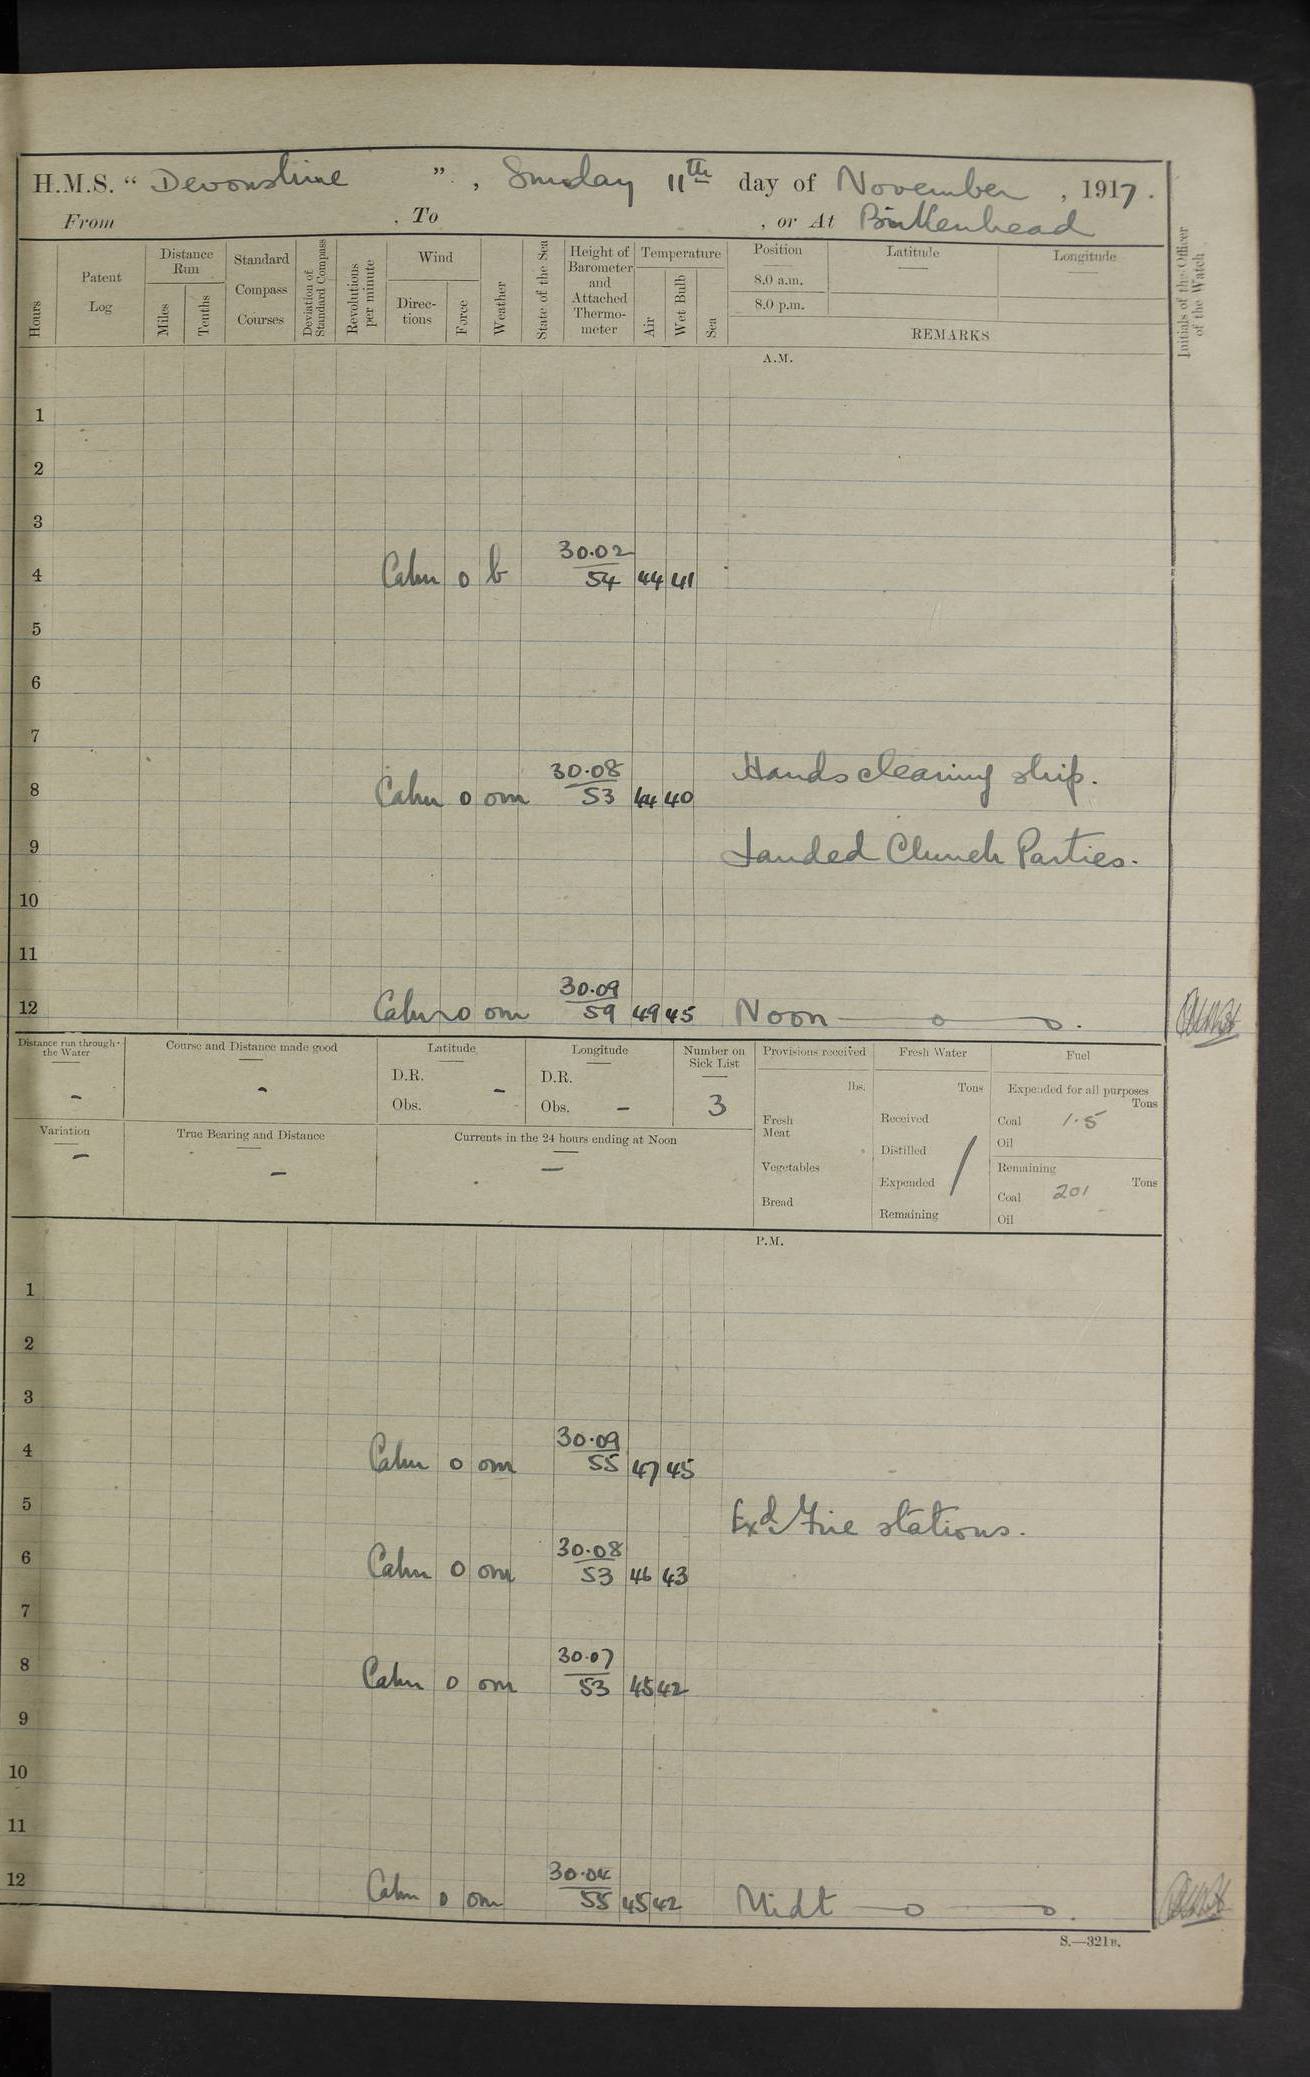 H.M.S. “ Devonshire ”, Sunday 11th day of November, 1917.
From , To , or At Birkenhead
Hours
Patent Log
Distance Run
Miles
Tenths
Standard Compass Courses
Deviation of Standard Compass
Revolutions per minute
Wind
Directions
Force
Weather
State of the Sea
Height of Barometer and Attached Thermometer
Temperature
Air
Wet Bulb
Sea
Position
8.0 a.m.
8.0 p.m.
Latitude
Longitude
REMARKS
Initials of the Officer of the Watch
A.M.
1
2
3
4 Calm 0 b 30.02 54 44 41
5
6
7
Hands cleaning ship.
8 Calm 0 om 30.08 53 44 40
9 Landed Church Parties.
10
11
12 Calm 0 om 30.09 59 49 45 Noon
Distance run through the Water
-
Course and Distance made good
-
Latitude
D.R.
Obs. -
Longitude
D.R.
Obs. -
Number on Sick List
3
Variation
-
True Bearing and Distance
-
Currents in the 24 hours ending at Noon
-
Provisions received
lbs.
Fresh Meat
Vegetables
Bread
Fresh Water
Tons
Received
Distilled
Expended
Remaining
Fuel
Expended for all purposes
Tons
Coal 1.5
Oil
Remaining
Tons
Coal 201
Oil
P.M.
1
2
3
4 Calm 0 om 30.09 55 47 45
5 Exd. Fire stations.
6 Calm 0 om 30.08 53 46 43
7
8 Calm 0 om 30.07 53 45 42
9
10
11
12 Calm 0 om 30.04 55 45 42 Midt
S.—321B.